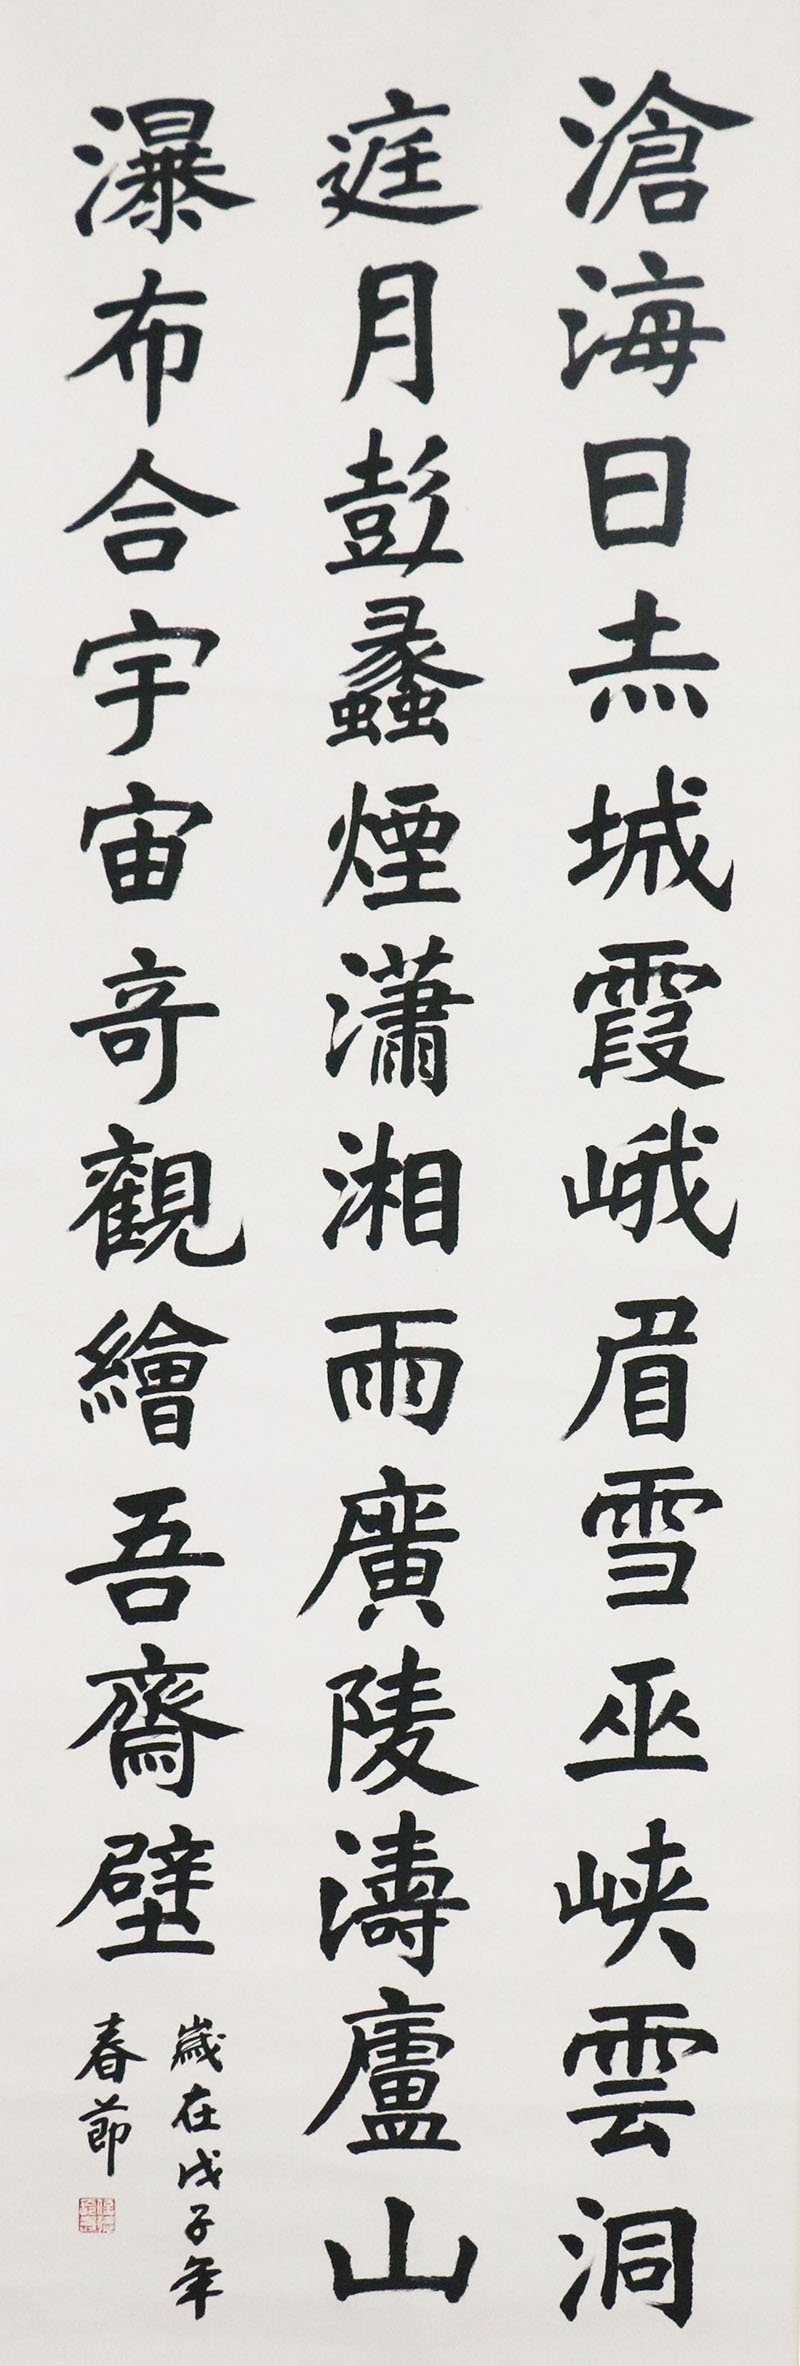 滄海日赤城霞峨眉雪巫峽雲洞
庭月彭蠡煙瀟湘雨廣陵濤廬山
瀑布合宇宙奇觀繪吾齋壁
歲在戊子年
春節